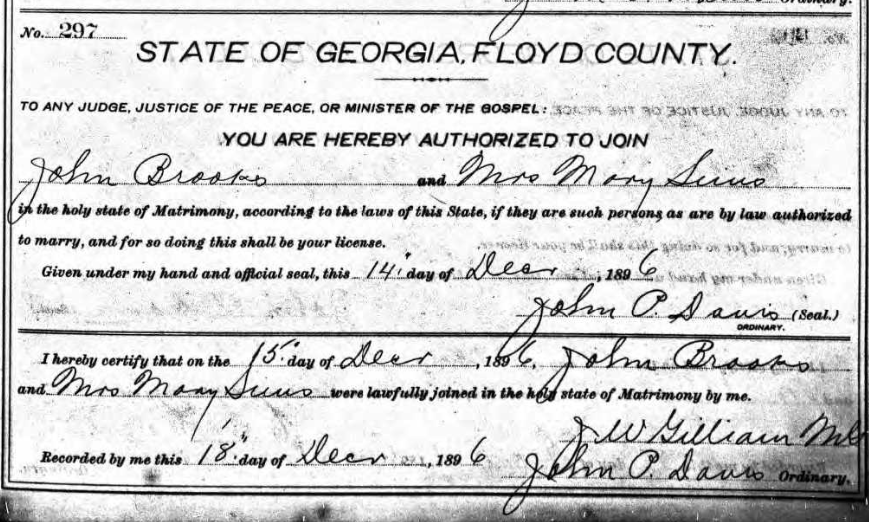 No. 297
STATE OF GEORGIA, FLOYD COUNTY.
TO ANY JUDGE, JUSTICE OF THE PEACE, OR MINISTER OF THE GOSPEL:
YOU ARE HEREBY AUTHORIZED TO JOIN
John Brooks and Mrs Mary Sims
in the holy state of Matrimony, according to the laws of this State, if they are such persons as are by law authorized
to marry, and for so doing this shall be your license.
Given under my hand and official seal, this 14" day of Decr, 1896
John P. Davis (Seal.)
ORDINARY.
I hereby certify that on the 15" day of Decr, 1896, John Brooks
and Mrs Mary Sims were lawfully joined in the holy state of Matrimony by me.
J. W. Gilliam
Recorded by me this 18" day of Decr, 1896
John P. Davis Ordinary.